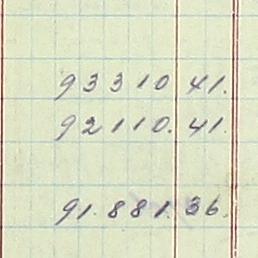 93310 41.
92110. 41.
91.881. 36.